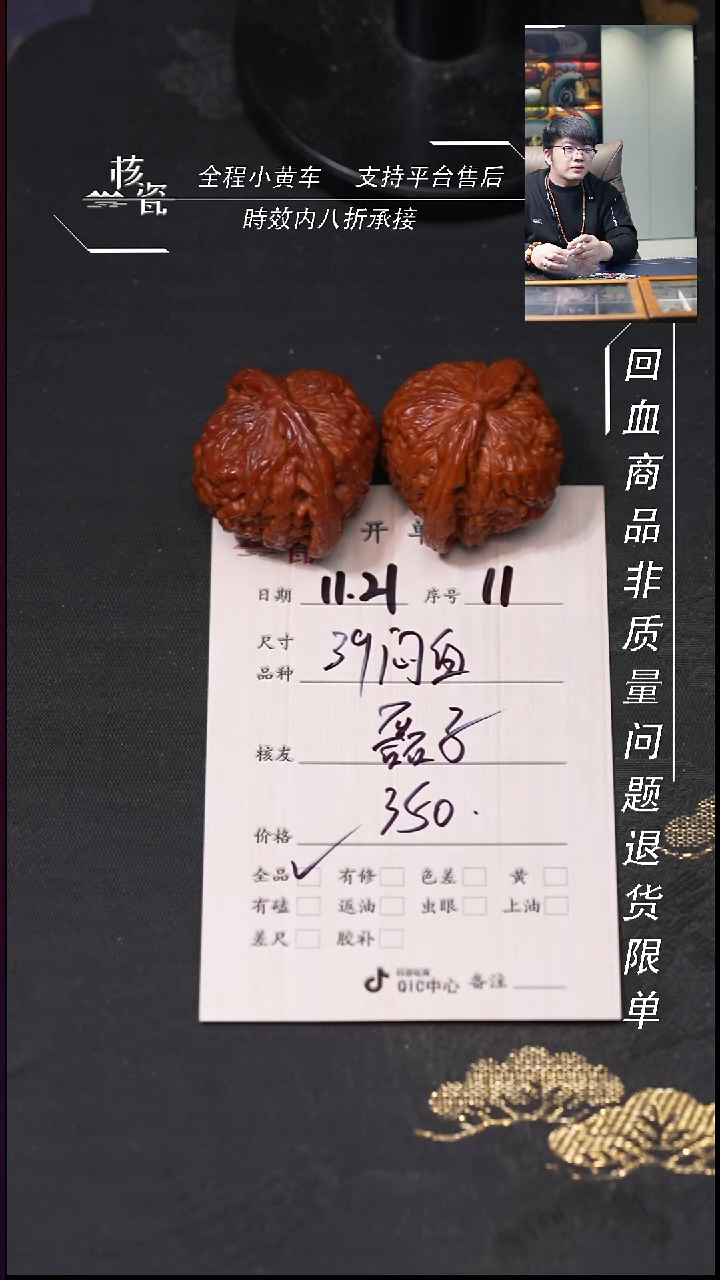 核瓷
全程小黄车 支持平台售后
時效内八折承接
回血商品非质量问题退货限单
开单
日期 11.21 序号 11
尺寸
品种 39闷血
核友
350.
价格
全品 ✓ 有修 色差 黄
有磕 返油 虫眼 上油
差尺 胶补
QIC中心 备注